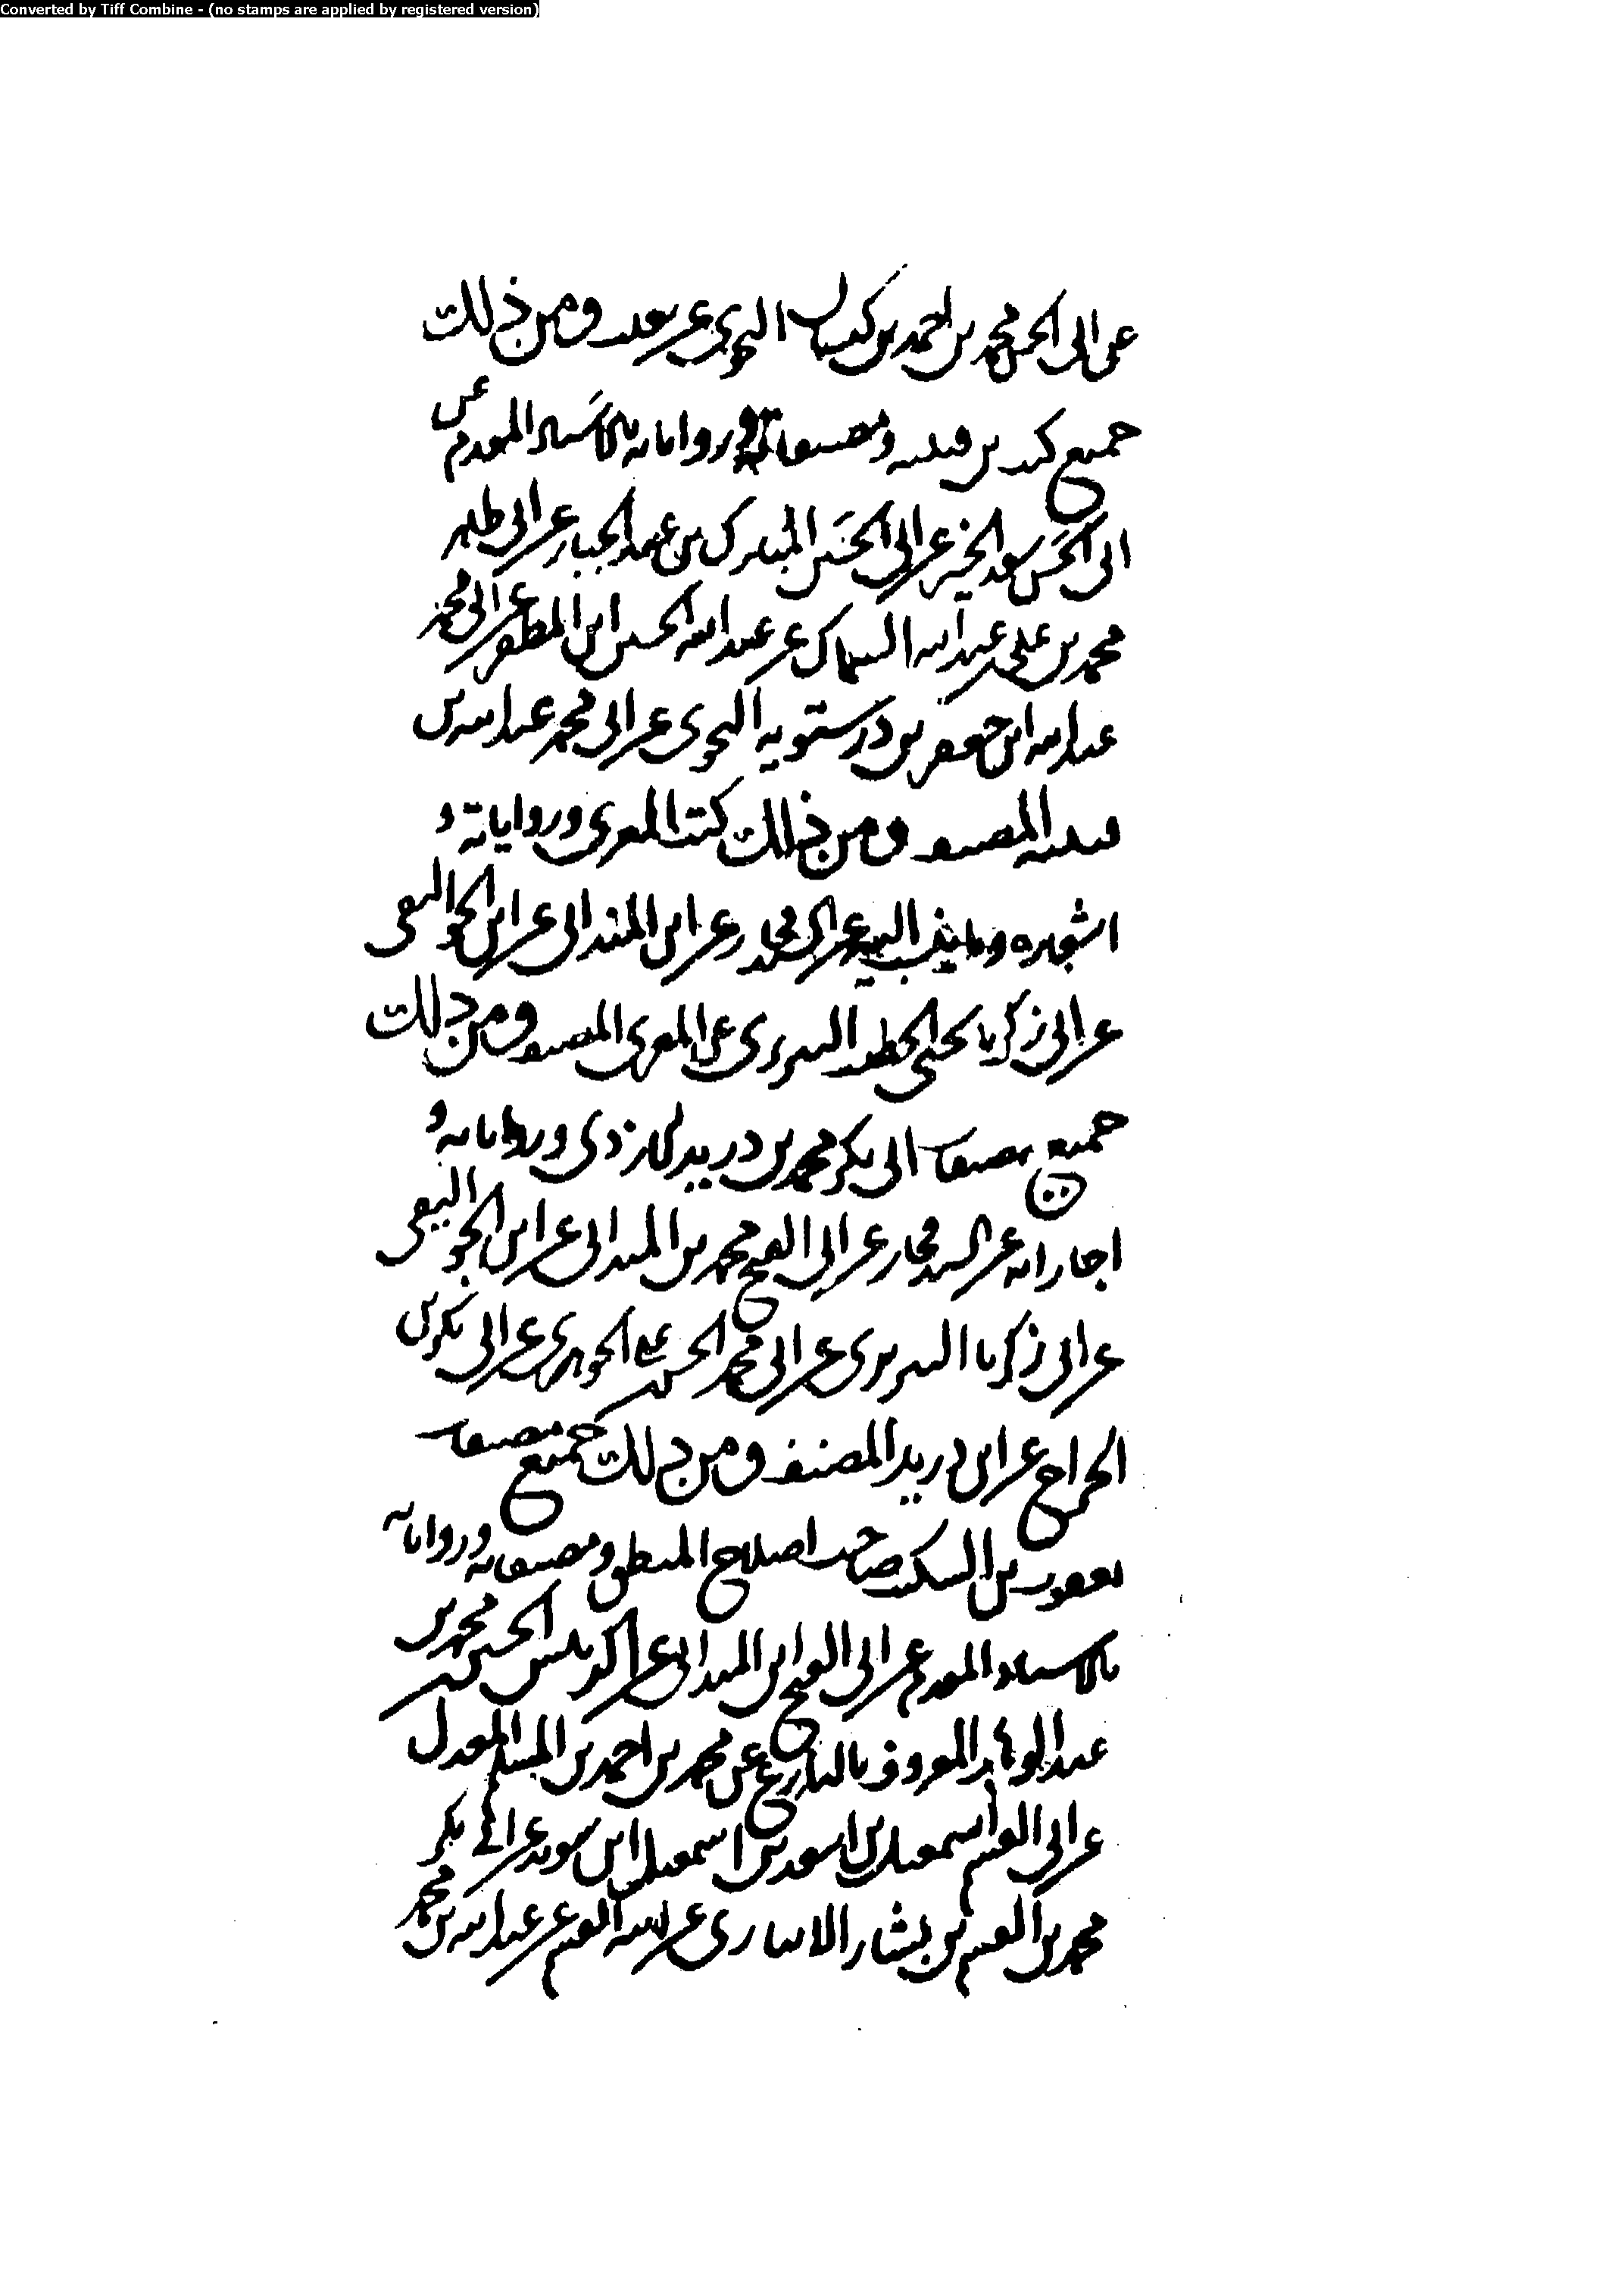 Converted by Tiff Combine - (no stamps are applied by registered version)
عن ابى الحسن محمد بن احمد بن كيسان النحوى عن ثعلب ومن ذلك
جميع كتب بن قتيبه ومصنفاته ورواياته بالاسناد المقدم عن
ابى الحسن سعد الخير عن ابى الحسن المبارك بن عبد الجبار عن ابى طاهر
محمد بن على بن عبد الله السماك عن عبد الله الحسين ابن المظفر عن ابى محمد
عبد الله ابن جعفر بن درستويه النحوى عن ابى محمد عبد الله بن
قتيبه المصنف ومن ذلك كتب المعرى ورواياته و
اشعاره وما ينسب اليه عن السيد فخار عن ابن المندائى عن ابن الجواليقى
عن ابى زكريا يحيى الخطيب التبريزى عن المعرى المصنف ومن ذلك
جميع مصنفات ابى بكر محمد بن دريد الازدى ورواياته و
اجازاته عن السيد فخار عن ابى الفتح محمد بن الميدانى عن ابن الجواليقى
عن ابى زكريا التبريزى عن ابى محمد الحسن بن على الجوهرى عن ابى بكر بن
الجراح عن ابن دريد المصنف ومن ذلك جميع مصنفات
يعقوب بن السكيت صاحب اصلاح المنطق ومصنفاته ورواياته
بالاسناد المقدم عن ابى الفتح ابن الميدانى عن الحسين بن محمد بن
عبد الوهاب المعروف بالبارع عن محمد بن احمد بن المسلمه المعدل
عن ابى القسم اسمعيل بن اسعد بن اسمعيل ابن سويد عن ابى بكر
محمد بن القسم بن بشار الانبارى عن ابيه القسم عن عبد الله بن محمد